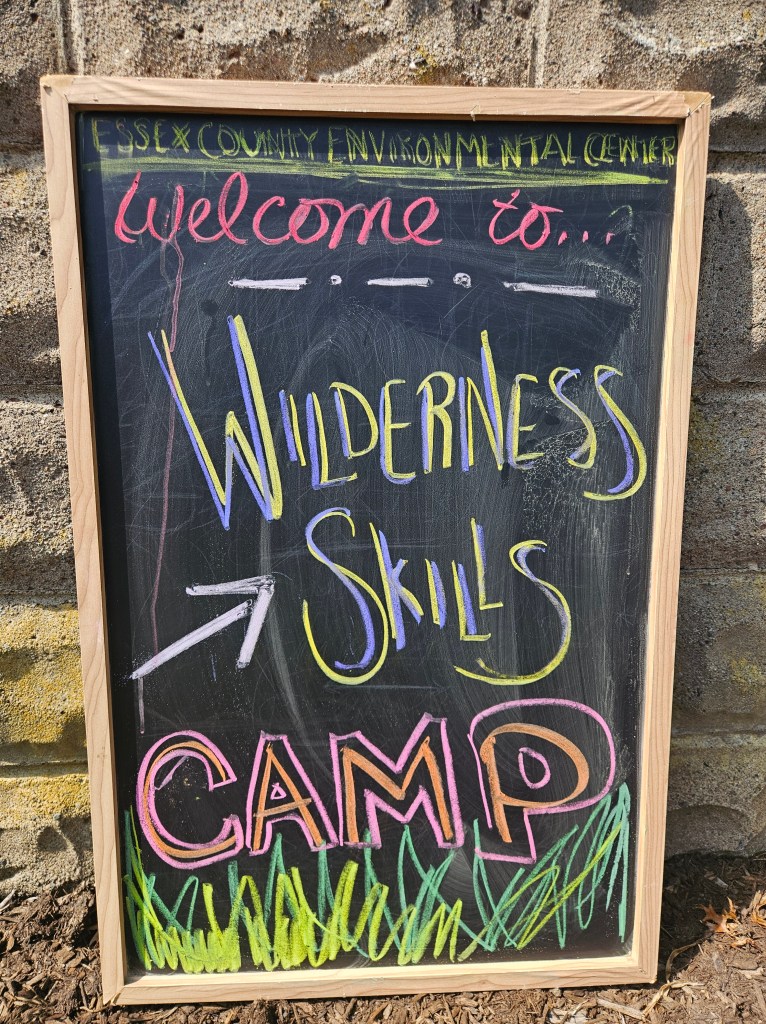 ESSEX COUNTY ENVIRONMENTAL CENTER
Welcome to...
WILDERNESS
SKILLS
CAMP